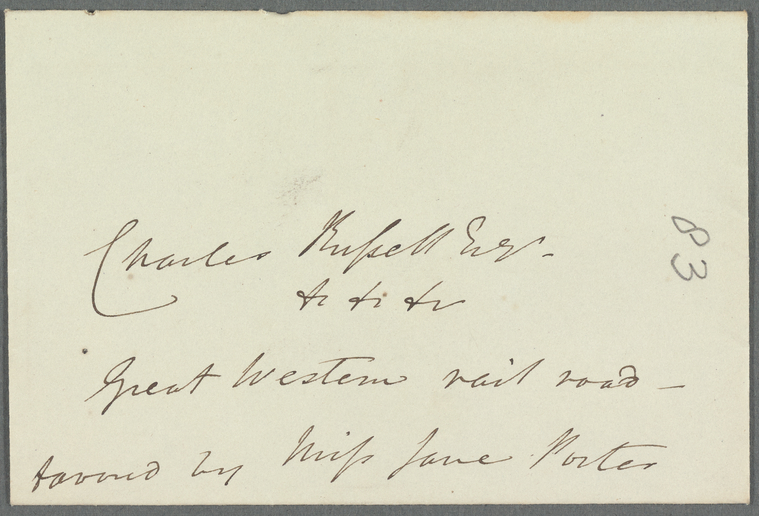 Charles Russell Esqr.
&c &c &c
Great Western rail road –
favored by Miss Jane Porter
83